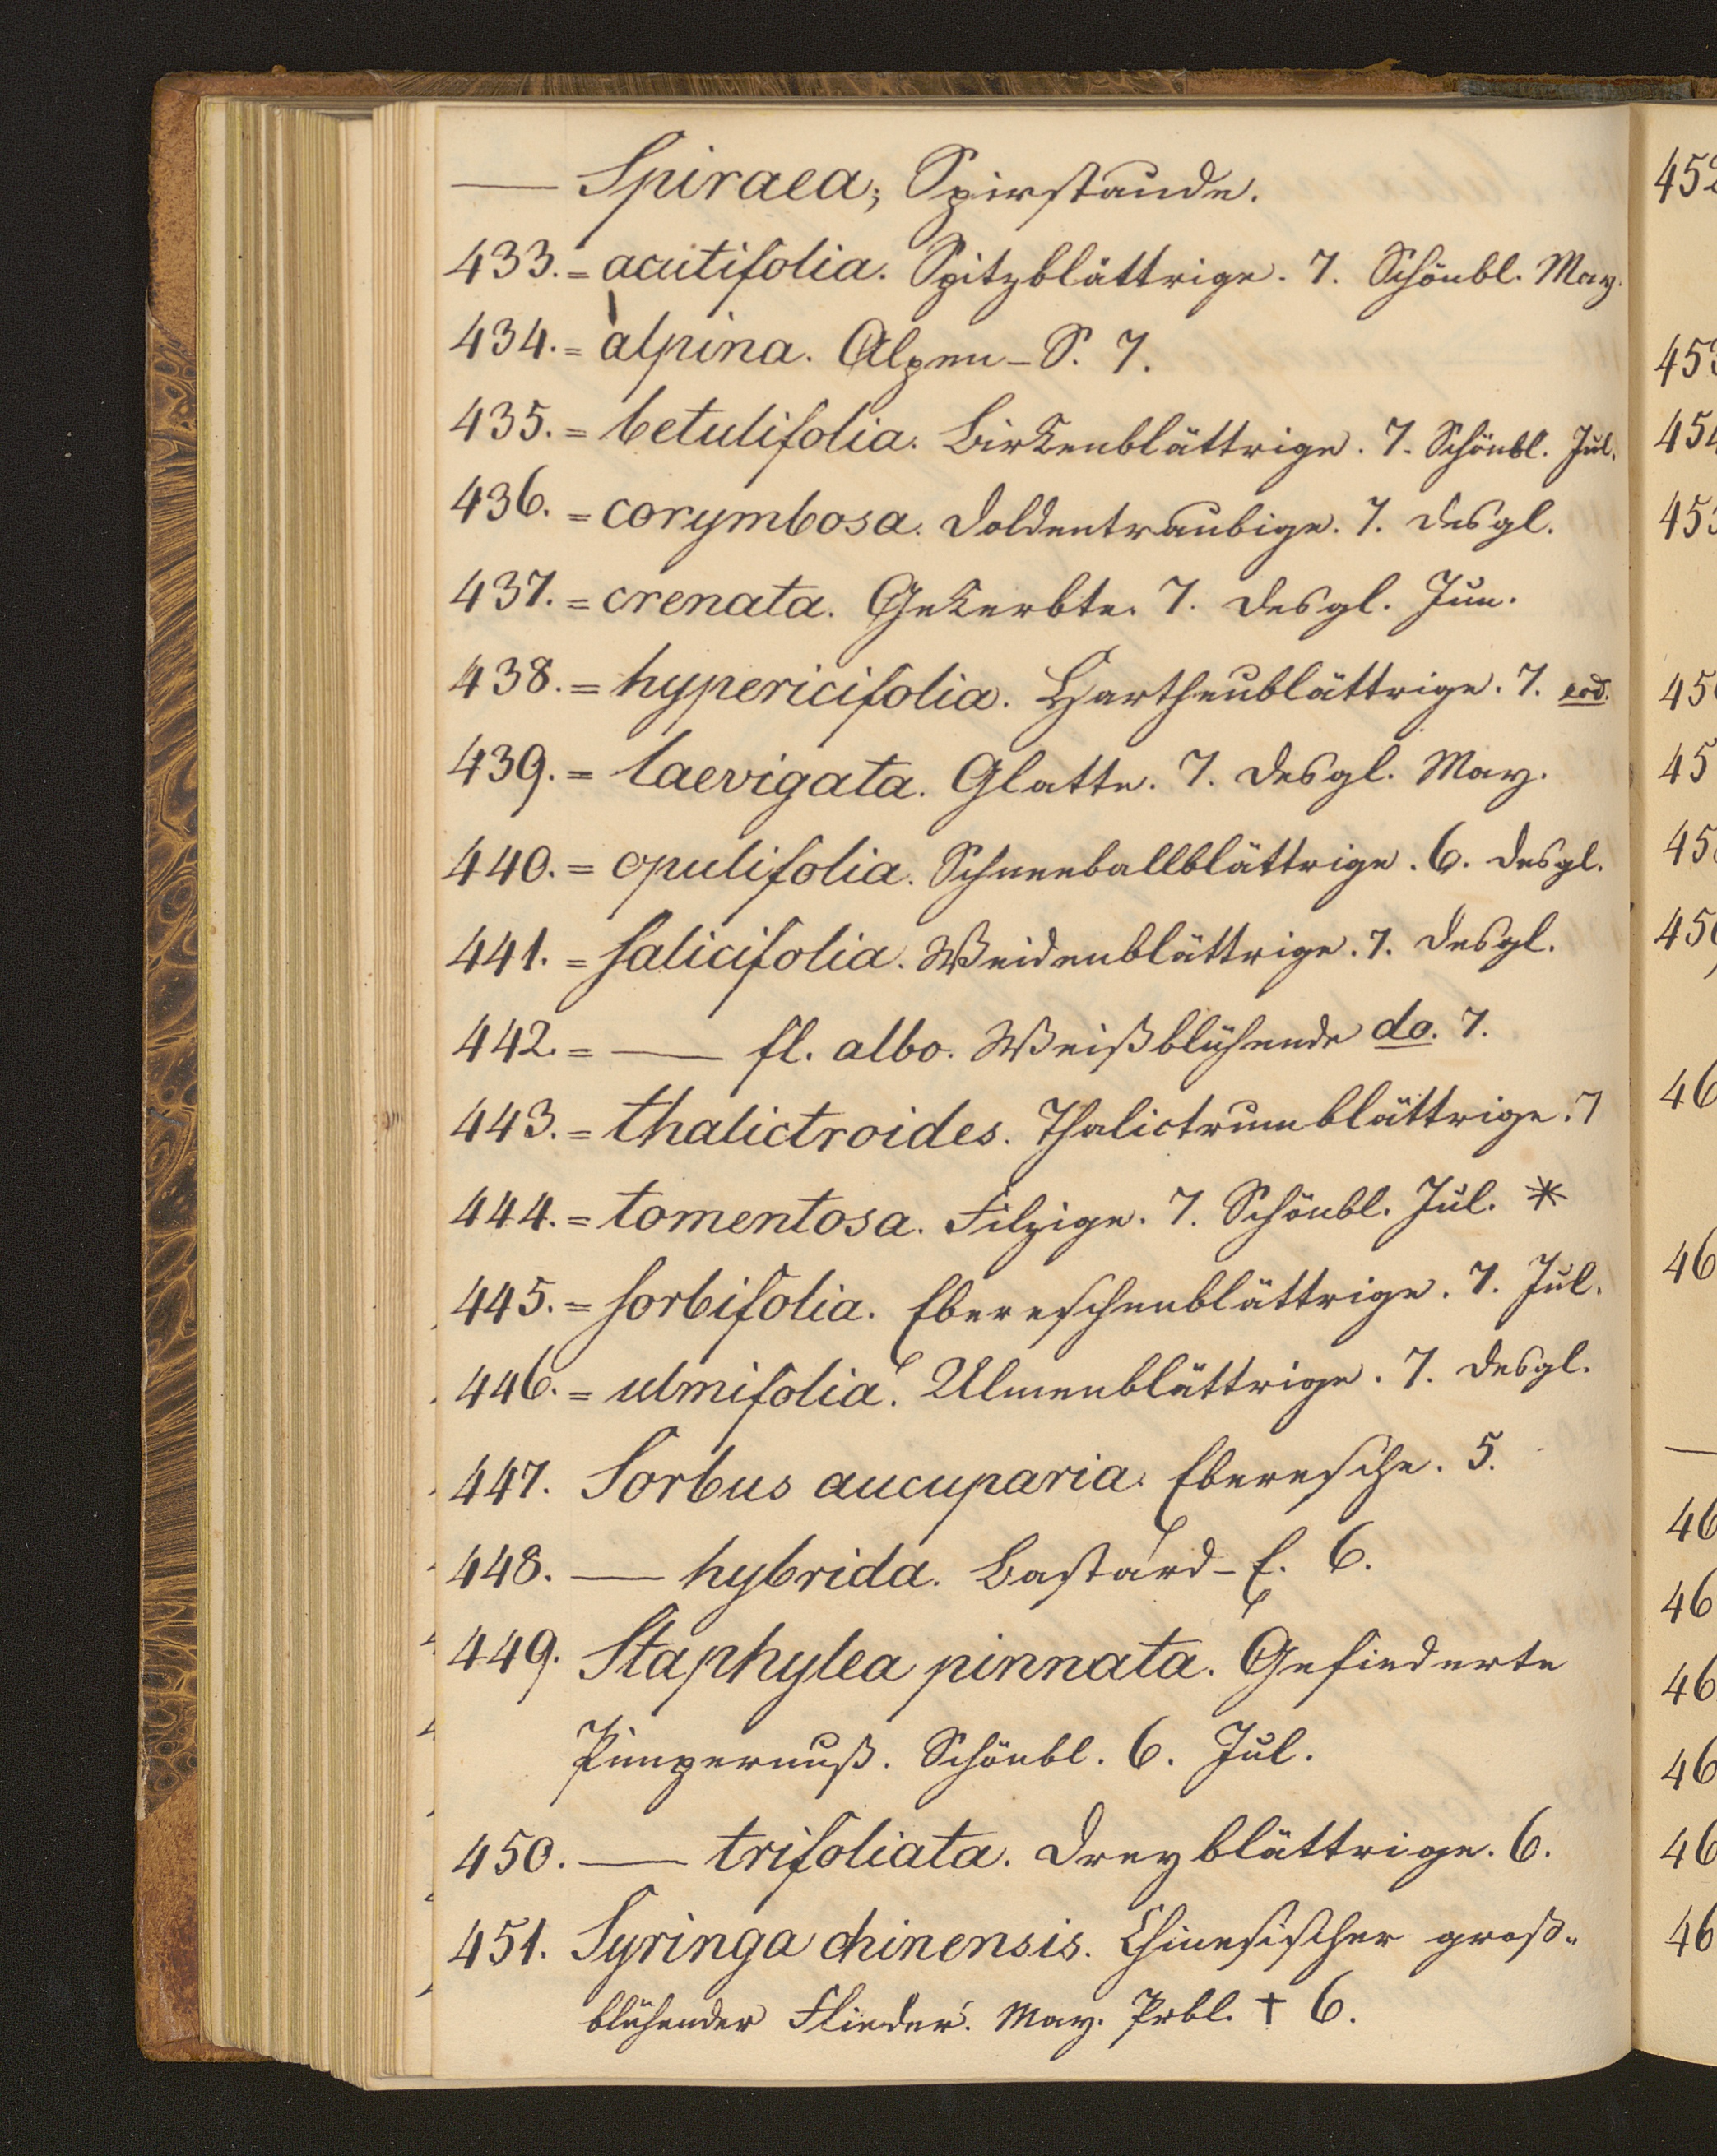 — Spiraea; Spirstaude.
433. = acutifolia. Spitzblättrige. 7. Schönbl. May.
434. = alpina. Alpen-S. 7.
435. = betulifolia. Birkenblättrige. 7. Schönbl. Jul.
436. = corymbosa. Doldentraubige. 7. desgl.
437. = crenata. Gekerbte. 7. desgl. Jun.
438. = hypericifolia. Hartheublättrige. 7. eod.
439. = laevigata. Glatte. 7. desgl. May.
440. = opulifolia. Schneeballblättrige. 6. desgl.
441. = salicifolia. Weidenblättrige. 7. desgl.
442. = — fl. albo. Weißblühende do. 7.
443. = thalictroides. Thalictrumblättrige. 7
444. = tomentosa. Filzige. 7. Schönbl. Jul. *
445. = sorbifolia. Ebereschenblättrige. 7. Jul.
446. = ulmifolia. Ulmenblättrige. 7. desgl.
447. Sorbus aucuparia. Eberesche. 5.
448. — hybrida. Bastard-E. 6.
449. Staphylea pinnata. Gefiederte
Pimpernuß. Schönbl. 6. Jul.
450. — trifoliata. Dreyblättrige. 6.
451. Syringa chinensis. Chinesischer groß-
blühender Flieder. May. Prbl. † 6.